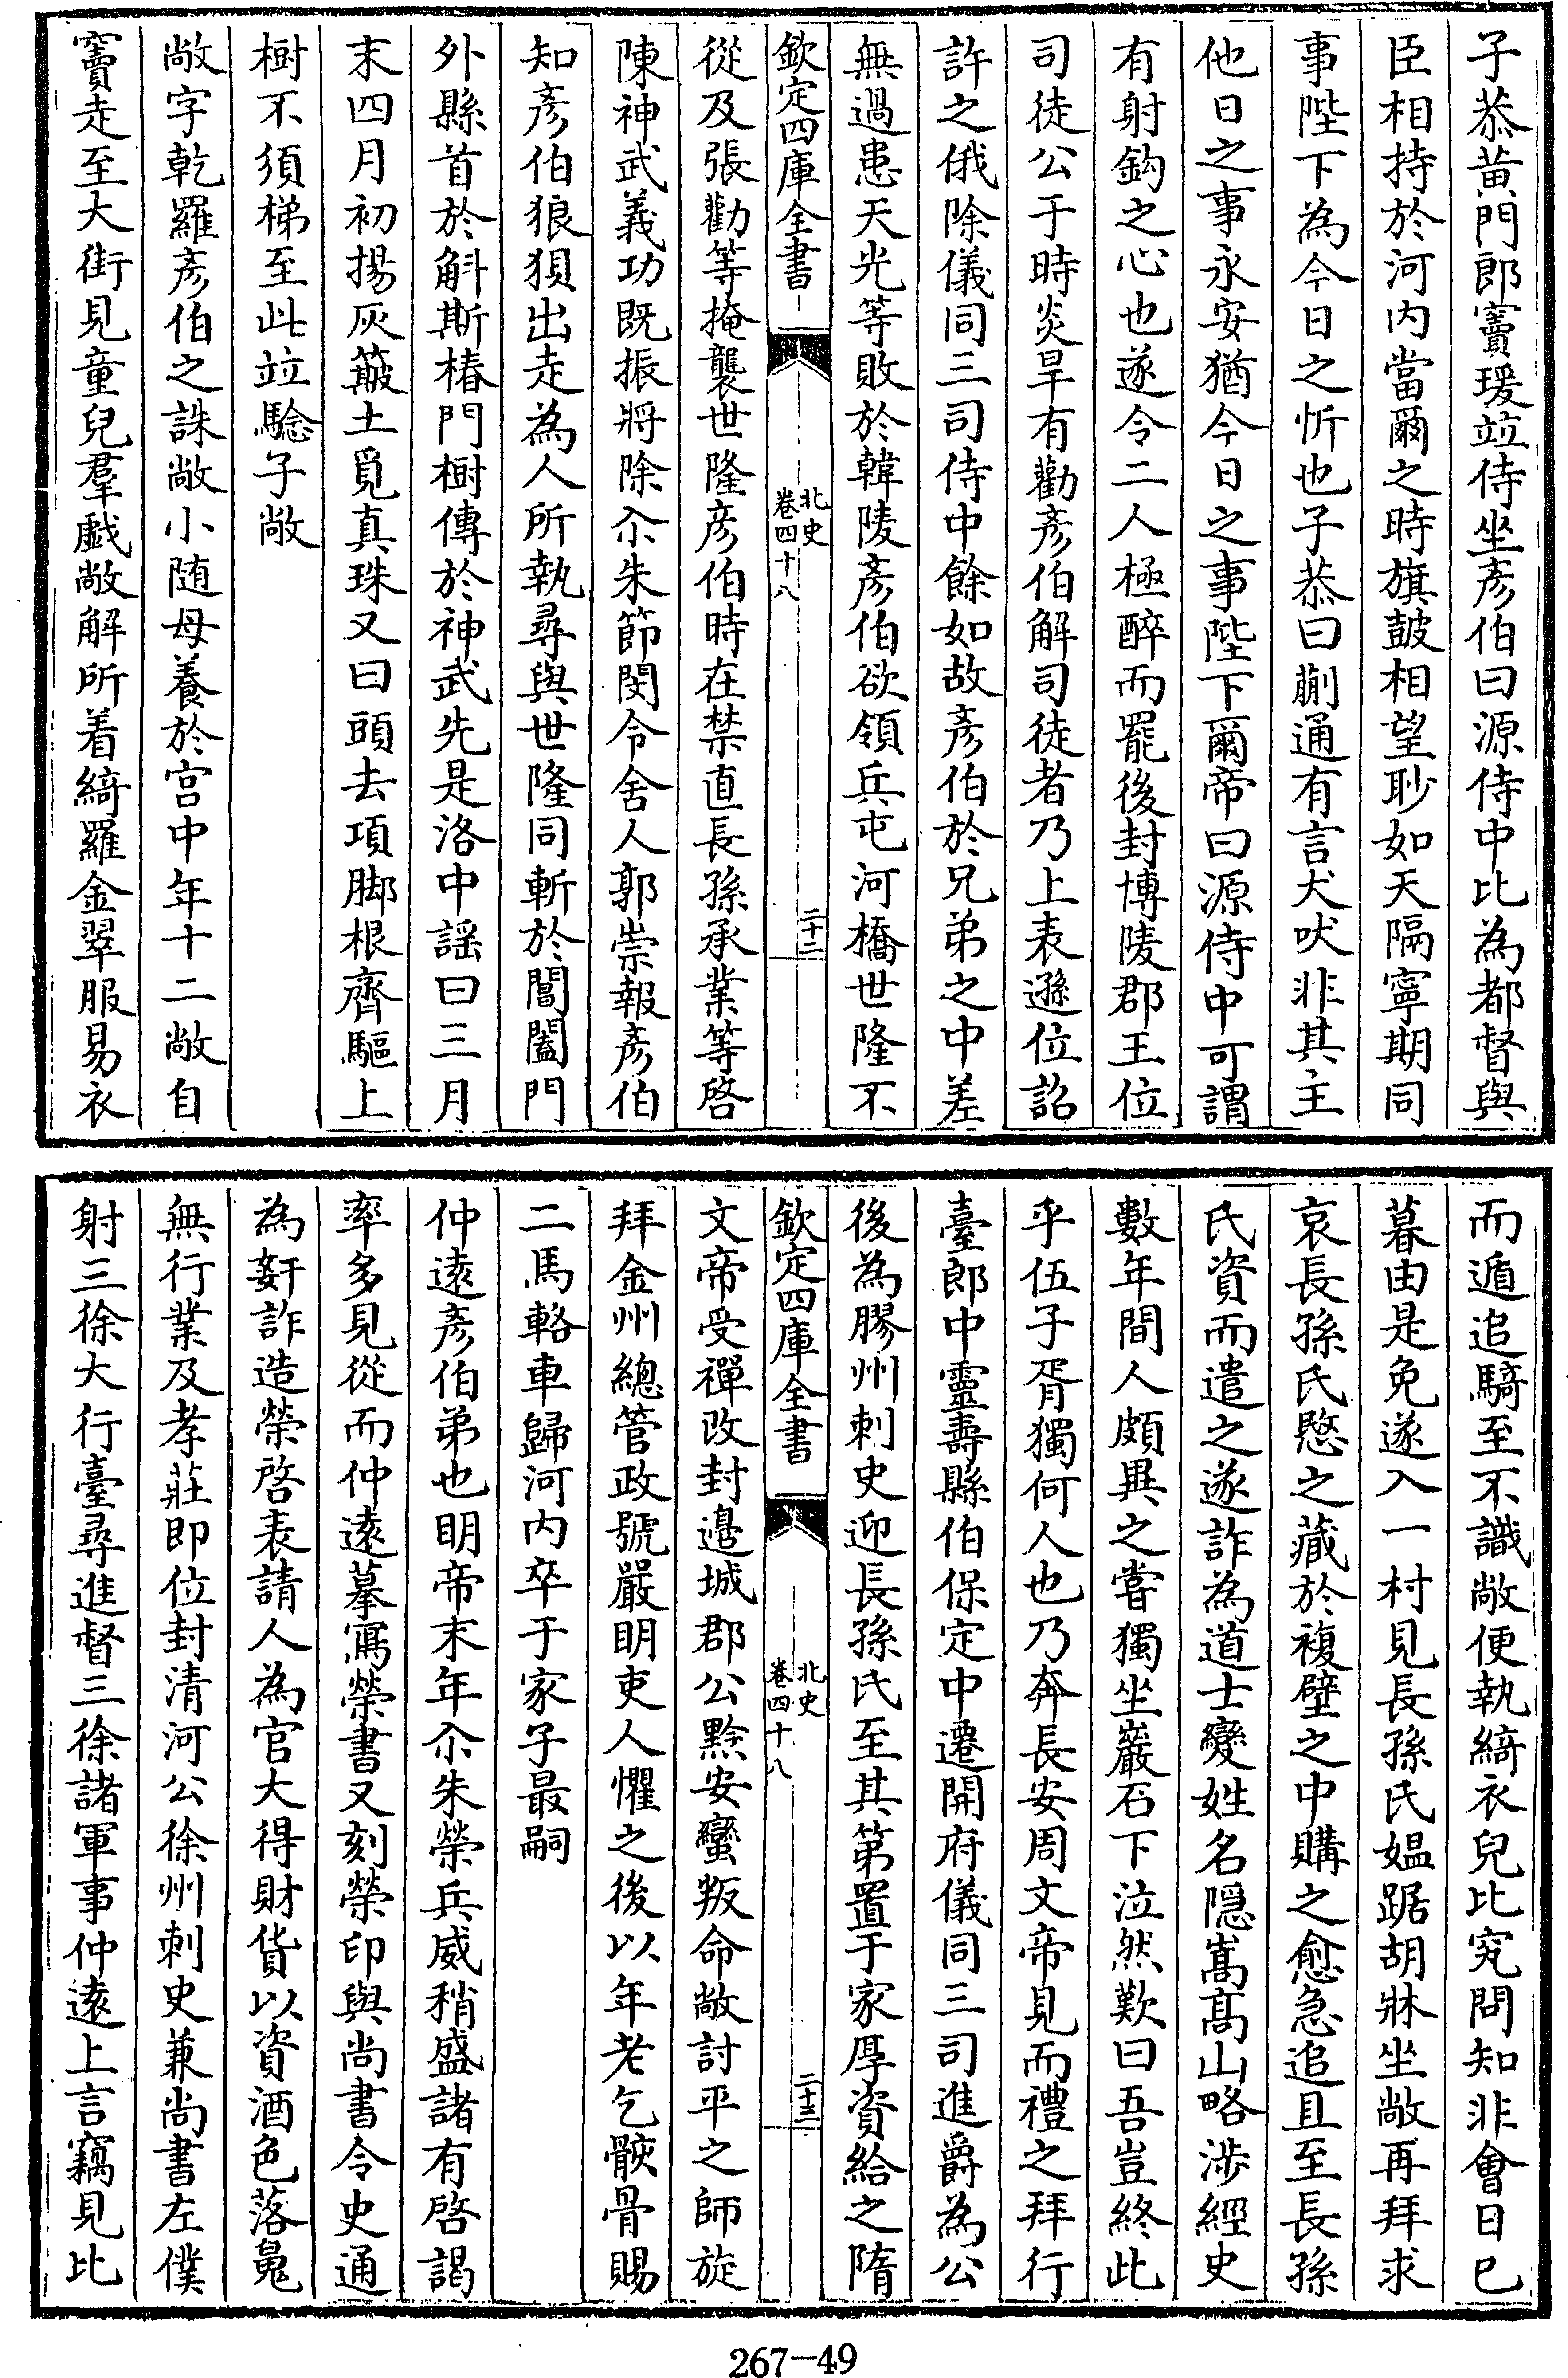 子恭黄門郎竇瑗竝侍坐彥伯曰源侍中比為都督與
臣相持於河内當爾之時旗鼓相望眇如天隔寧期同
事陛下為今日之忻也子恭曰蒯通有言犬吠非其主
他日之事永安猶今日之事陛下爾帝曰源侍中可謂
有射鈎之心也遂令二人極醉而罷後封博陵郡王位
司徒公于時炎旱有勸彥伯解司徒者乃上表遜位詔
許之俄除儀同三司侍中餘如故彥伯於兄弟之中差
無過患天光等敗於韓陵彥伯欲領兵屯河橋世隆不
欽定四庫全書
北史
卷四十八
二十二
從及張勸等掩襲世隆彥伯時在禁直長孫承業等啓
陳神武義功既振將除尒朱節閔令舍人郭崇報彥伯
知彥伯狼狽出走為人所執尋與世隆同斬於閶闔門
外縣首於斛斯椿門樹傳於神武先是洛中謡曰三月
末四月初揚灰簸土覓真珠又曰頭去項脚根齊驅上
樹不須梯至此竝驗子敞
敞字乾羅彥伯之誅敞小随母養於宫中年十二敞自
竇走至大街見童兒羣戲敞解所着綺羅金翠服易衣
而遁追騎至不識敞便執綺衣兒比究問知非會日已
暮由是免遂入一村見長孫氏媪踞胡牀坐敞再拜求
哀長孫氏愍之藏於複壁之中購之愈急追且至長孫
氏資而遣之遂詐為道士變姓名隱嵩高山略涉經史
數年間人頗異之嘗獨坐巖石下泣然歎曰吾豈終此
乎伍子胥獨何人也乃奔長安周文帝見而禮之拜行
臺郎中靈壽縣伯保定中遷開府儀同三司進爵為公
後為膠州刺史迎長孫氏至其第置于家厚資給之隋
欽定四庫全書
北史
卷四十八
二十三
文帝受禪改封邉城郡公黔安蠻叛命敞討平之師旋
拜金州總管政號嚴明吏人懼之後以年老乞骸骨賜
二馬輅車歸河内卒于家子最嗣
仲遠彥伯弟也明帝末年尒朱榮兵威稍盛諸有啓謁
率多見從而仲遠摹寫榮書又刻榮印與尚書令史通
為姧詐造榮啓表請人為官大得財貨以資酒色落魄
無行業及孝莊即位封清河公徐州刺史兼尚書左僕
射三徐大行臺尋進督三徐諸軍事仲遠上言竊見比
267-49